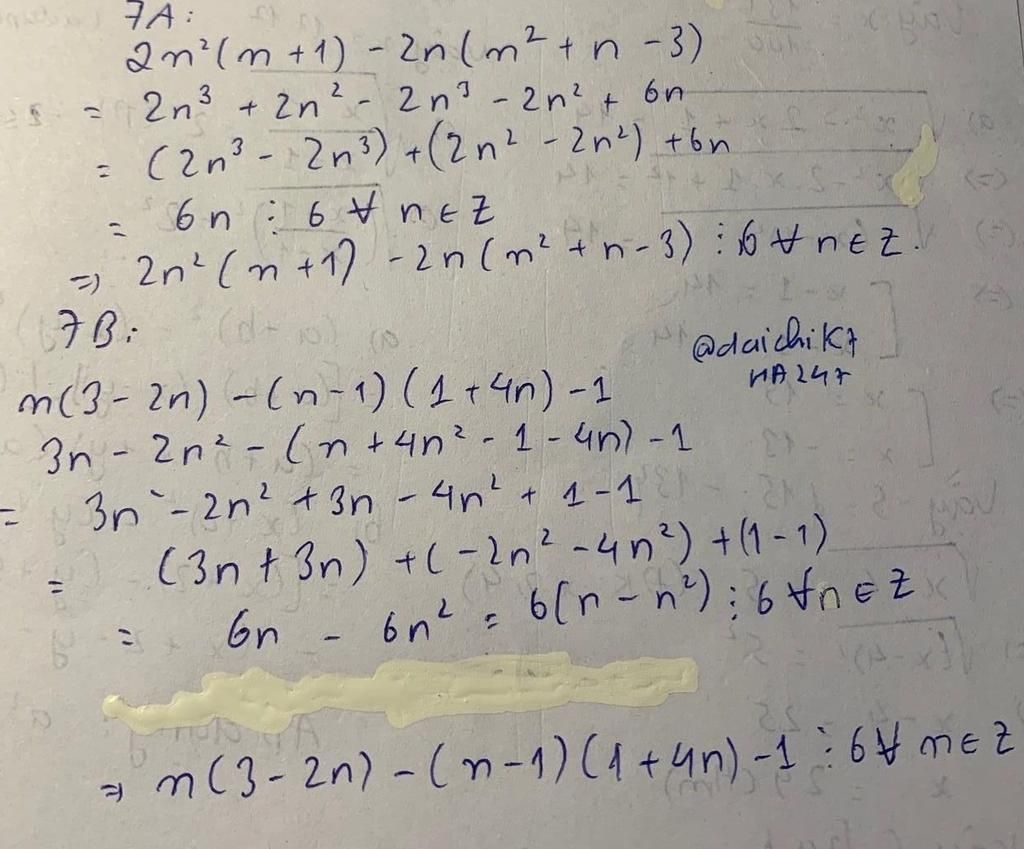 7A:
2n²(n+1) - 2n(n² + n - 3)
= 2n³ + 2n² - 2n³ - 2n² + 6n
= (2n³ - 2n³) + (2n² - 2n²) + 6n
= 6n ⋮ 6 ∀ n ∈ Z
=> 2n²(n+1) - 2n(n² + n - 3) ⋮ 6 ∀ n ∈ Z.
7B:
@daichiK7
HA247
n(3 - 2n) - (n - 1)(1 + 4n) - 1
3n - 2n² - (n + 4n² - 1 - 4n) - 1
= 3n - 2n² + 3n - 4n² + 1 - 1
= (3n + 3n) + (-2n² - 4n²) + (1 - 1)
= 6n - 6n² = 6(n - n²) ⋮ 6 ∀ n ∈ Z
=> n(3 - 2n) - (n - 1)(1 + 4n) - 1 ⋮ 6 ∀ n ∈ Z